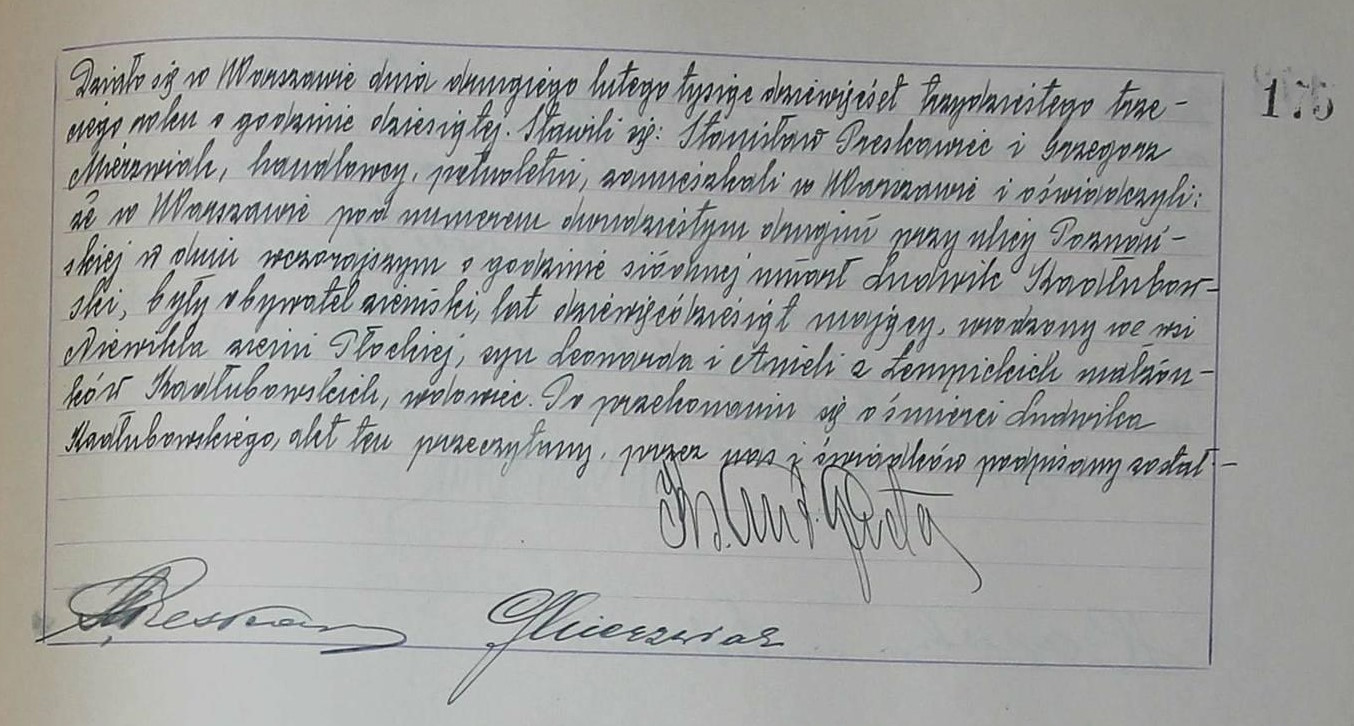 175
Działo się w Warszawie dnia drugiego lutego tysiąc dziewięćset trzydziestego trze-
ciego roku o godzinie dziesiątej. Stawili się: Stanisław Preskawiec i Grzegorz
Mierzwiak, handlowcy, pełnoletni, zamieszkali w Warszawie i oświadczyli:
że w Warszawie pod numerem dwudziestym drugim przy ulicy Poznań-
skiej w dniu wczorajszym o godzinie siódmej umarł Ludwik Kadłubow-
ski, były obywatel ziemski, lat dziewięćdziesiąt mający, urodzony we wsi
Niewikla ziemi Płockiej, syn Leonarda i Anieli z Łempickich małżon-
ków Kadłubowskich, wdowiec. Po przekonaniu się o śmierci Ludwika
Kadłubowskiego, akt ten przeczytany, przez nas i świadków podpisany został -
GMierzwiak